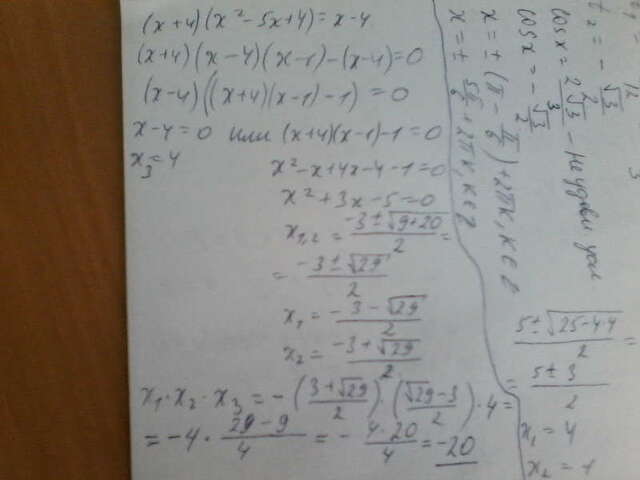 (x+4)(x²-5x+4)=x-4
(x+4)(x-4)(x-1)-(x-4)=0
(x-4)((x+4)(x-1)-1)=0
x-4=0 или (x+4)(x-1)-1=0
x₃=4
x²-x+4x-4-1=0
x²+3x-5=0
x₁,₂ = (-3±√(9+20))/2 =
= (-3±√29)/2
x₁ = (-3-√29)/2
x₂ = (-3+√29)/2
x₁·x₂·x₃ = -((3+√29)/2)·((√29-3)/2)·4=
= -4·(29-9)/4 = -(4·20)/4 = -20
12
t₂ = -√3/2
3
cosx = 2√3/3 - не удовл усл
cosx = -√3/2
x = ±(π-π/6)+2πk, k∈Z
x = ± 5π/6 +2πk, k∈Z
(5±√(25-4·4))/2 =
= (5±3)/2
x₁ = 4
x₂ = 1